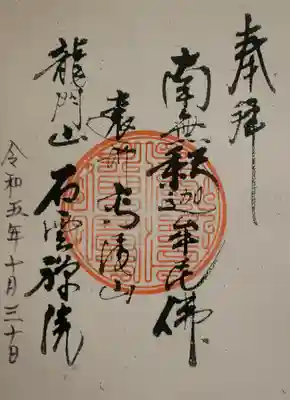 奉拝
南無釈迦牟尼佛
龍門山 石雲禅院
令和五年十月三十日